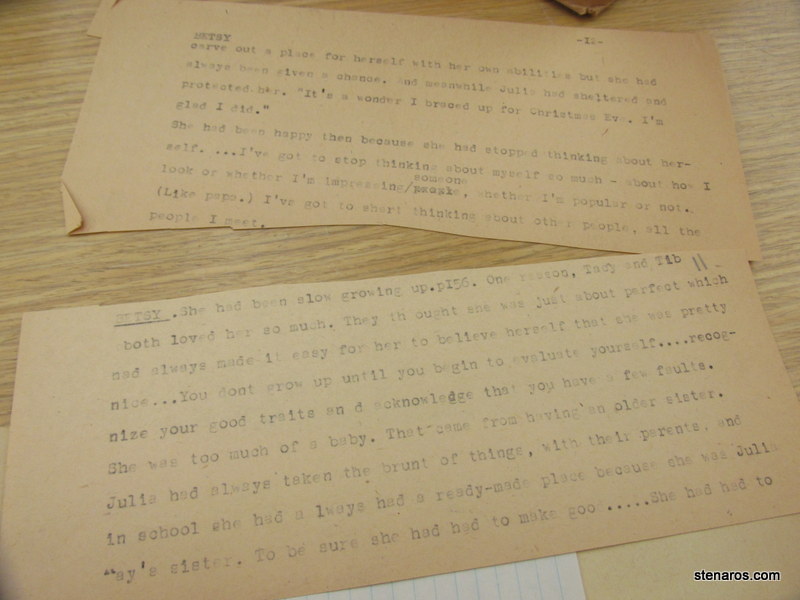 BETSY -12-
carve out a place for herself with her own abilities but she had
always been given a chance. and meanwhile Julia had sheltered and
protected her. "It's a wonder I braced up for Christmas Eve. I'm
glad I did."
She had been happy then because she had stopped thinking about her-
self. ...I've got to stop thinking about myself so much - about how I
someone
look or whether I'm impressing/people, whether I'm popular or not.
(Like papa.) I've got to short thinking about other people, all the
people I meet.
BETSY .She had been slow growing up.pI56. One reason, Tacy and Tib 11
both loved her so much. They th ought she was just about perfect which
had always made it easy for her to believe herself that she was pretty
nice...You dont grow up until you begin to evaluate yourself....recog-
nize your good traits an d acknowledge that you have a few faults.
She was too much of a baby. That came from having an older sister.
Julia had always taken the brunt of things, with their parents, and
in school she had a lways had a ready-made place because she was Julia
ay's sister. To be sure she had had to make goo .....She had had to
stenaros.com